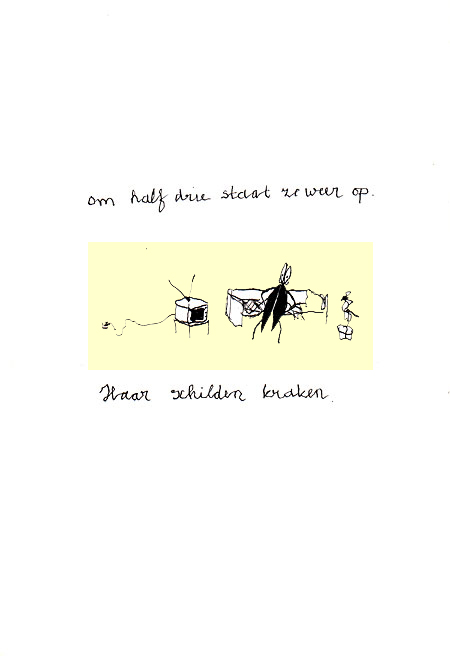 om half drie staat ze weer op.
Haar schilden kraken.